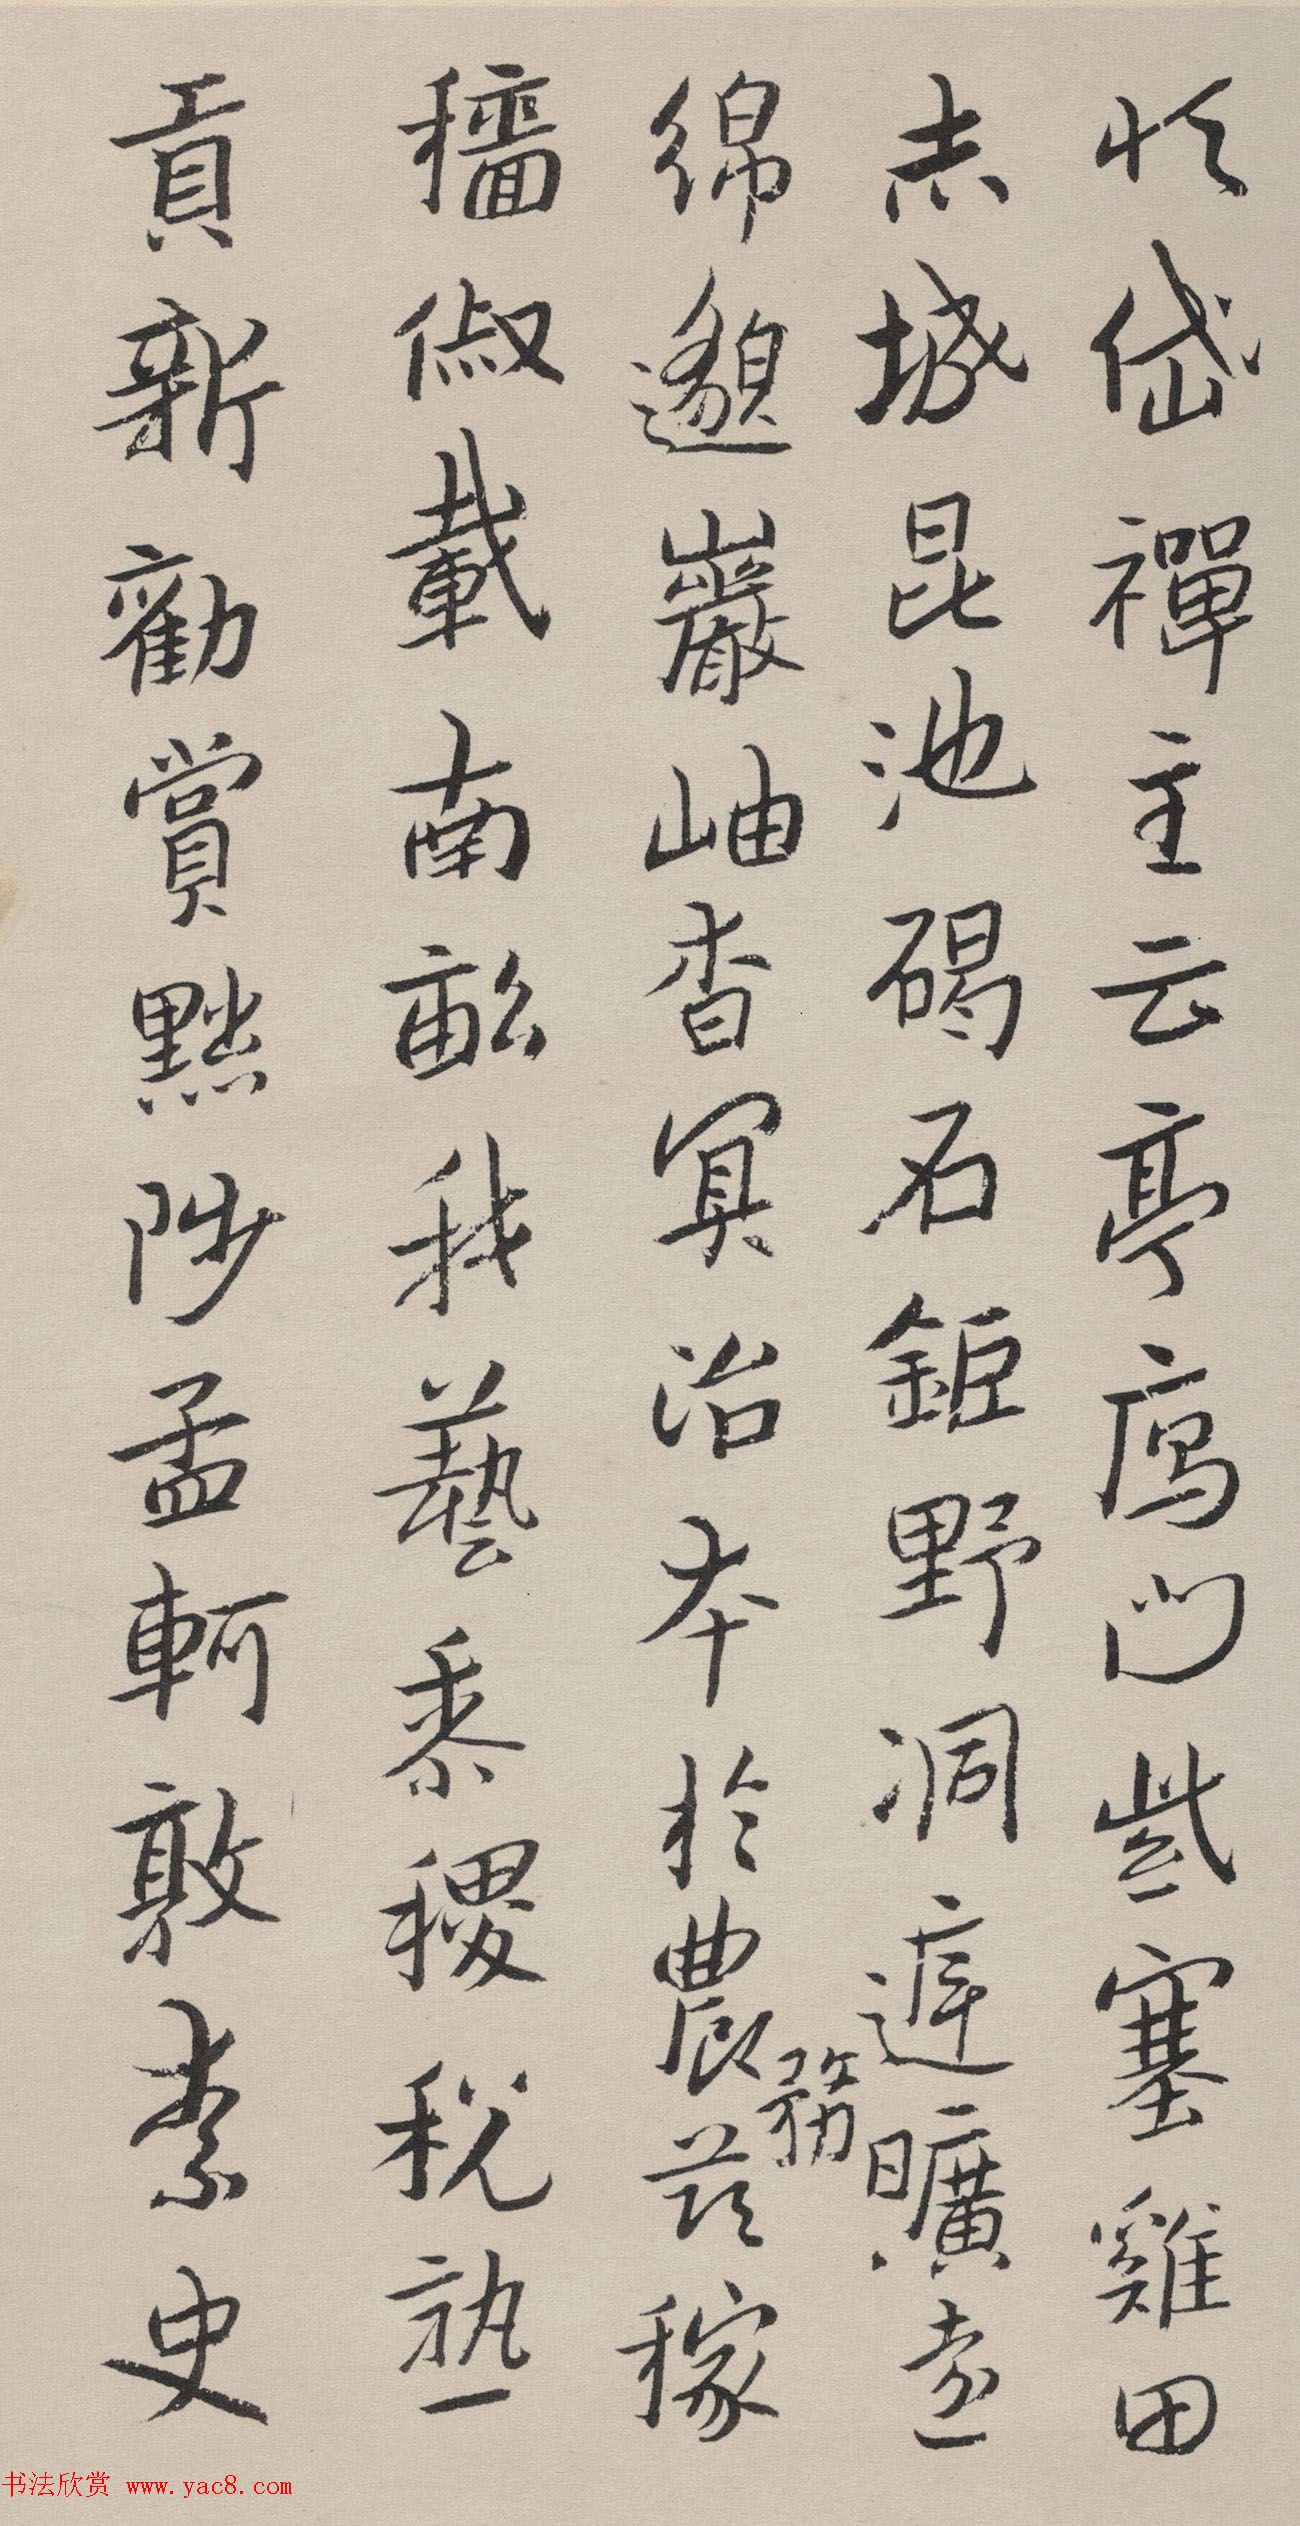 恆岱禪主云亭鴈門紫塞雞田
赤城昆池碣石鉅野洞遲曠遠
綿邈巖岫杳冥治本於農務茲稼
穡俶載南畝我藝黍稷稅熟
貢新勸賞黜陟孟軻敦素史
书法欣赏 www.yac8.com